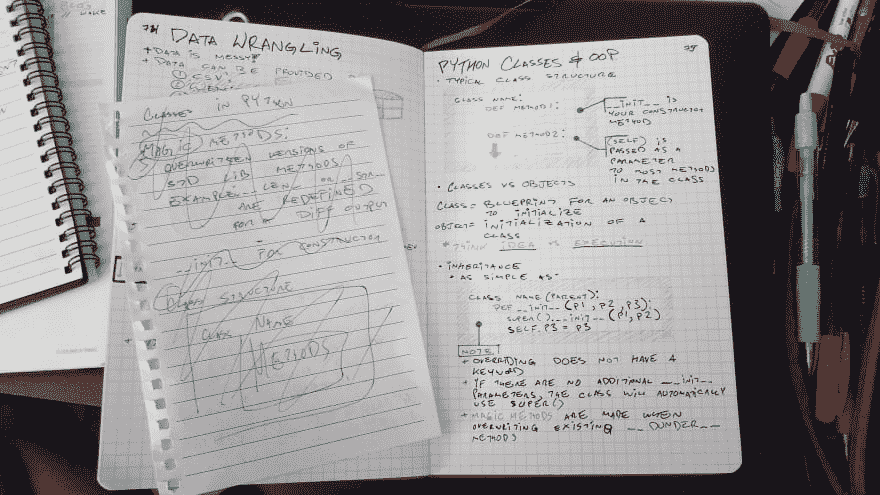 74
DATA WRANGLING
+ DATA IS MESSY
+ DATA CAN BE PROVIDED
① CSV'S
CLASSES IN PYTHON
MAGIC METHODS:
OVERWRITTEN VERSIONS OF
STD LIB METHODS
EXAMPLE __LEN__ OR
ARE REDEFINED
FOR A DIFF OUTPUT
__INIT__ FOR CONSTRUCTOR
CLASS STRUCTURE
CLASS NAME
METHODS
75
PYTHON CLASSES & OOP
· TYPICAL CLASS STRUCTURE
CLASS NAME:
DEF METHOD1:
__INIT__ IS
YOUR CONSTRUCTOR
METHOD
DEF METHOD2:
(SELF) IS
PASSED AS A
PARAMETER
TO MOST METHODS
IN THE CLASS
· CLASSES VS OBJECTS
CLASS = BLUEPRINT FOR AN OBJECT
TO INITIALIZE
OBJECT = INITIALIZATION OF A
CLASS
* THINK IDEA VS EXECUTION
· INHERITANCE
· AS SIMPLE AS:
CLASS NAME (PARENT):
DEF __INIT__ (P1, P2, P3):
SUPER().__INIT__ (P1, P2)
SELF.P3 = P3
NOTE
+ OVERRIDING DOES NOT HAVE A
KEYWORD
+ IF THERE ARE NO ADDITIONAL __INIT__
PARAMETERS, THE CLASS WILL AUTOMATICALLY
USE SUPER()
+ MAGIC METHODS ARE MADE WHEN
OVERWRITING EXISTING __DUNDER__
METHODS